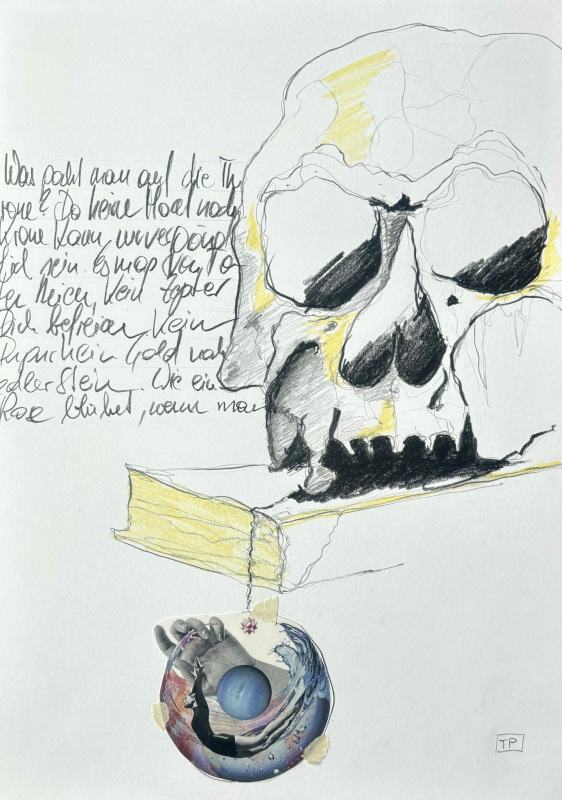 Was pocht man auf die Th
rone? Da keine Macht noch
Krone kann unvergäng
lich sein. Es mag vom To
ten Reien, kein Zepter
Dich befreien, kein
Purpur kein Gold noch
edler Stein. Wie ein
Rose blühet, wenn man
TP